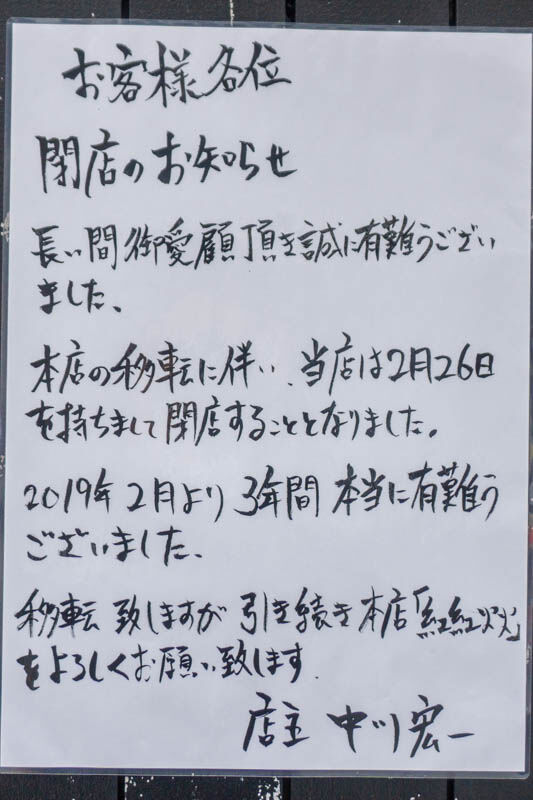 お客様各位
閉店のお知らせ
長い間御愛顧頂き誠に有難うござい
ました、
本店の移転に伴い、当店は2月26日
を持ちまして閉店することとなりました。
2019年2月より3年間本当に有難う
ございました、
移転致しますが引き続き本店「紅紅火火」
をよろしくお願い致します.
店主 中川宏一